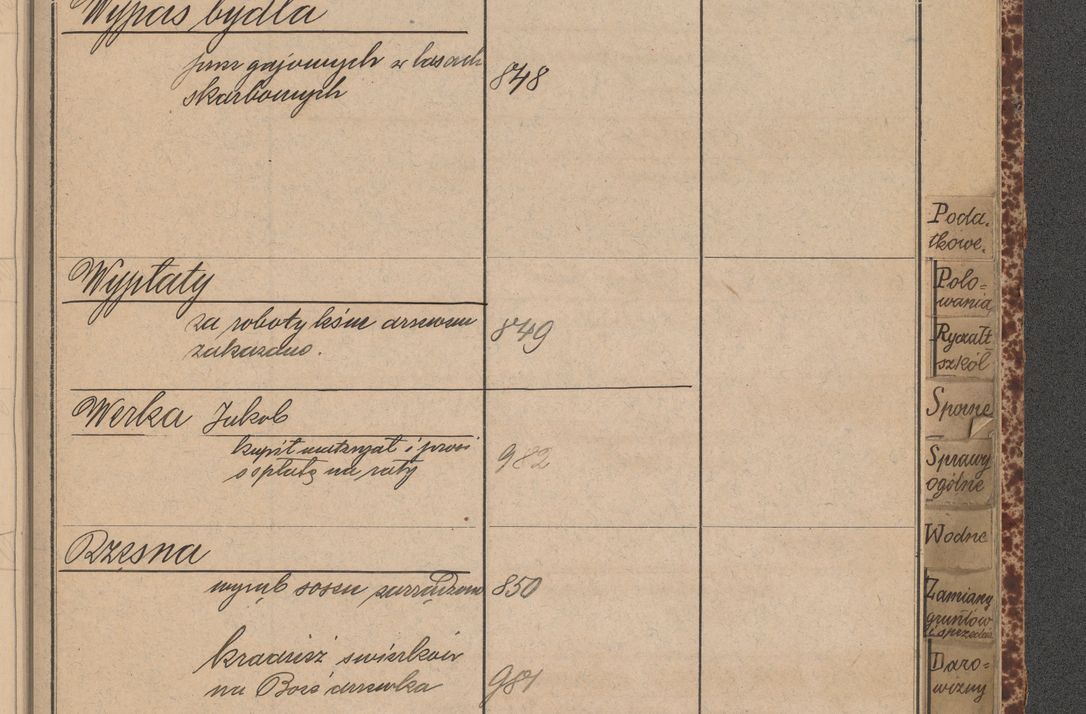 Wypas bydła
przez gajowych w lasach 848
skarbowych
Wypłaty
za roboty leśne drzewem 849
zakazano.
Werka Jakob
kupił materyał i prosi 982
spłatę na raty
Rzęsna
wyrąb sosen zarządzono 850
kradzież świerków
na Boże drzewka 981
Poda-
tkowe.
Polo=
wania
Ryczałt
szkół
Sporne
Sprawy
ogólne
Wodne
Zamiany
gruntów
i sprzedaż
Daro=
wizny